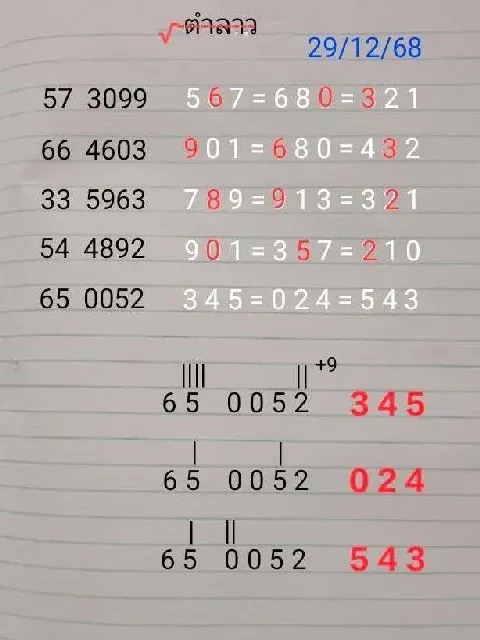 √ตำลาว
29/12/68
57 3099 567=680=321
66 4603 901=680=432
33 5963 789=913=321
54 4892 901=357=210
65 0052 345=024=543
|||| || +9
65 0052 345
| |
65 0052 024
| ||
65 0052 543